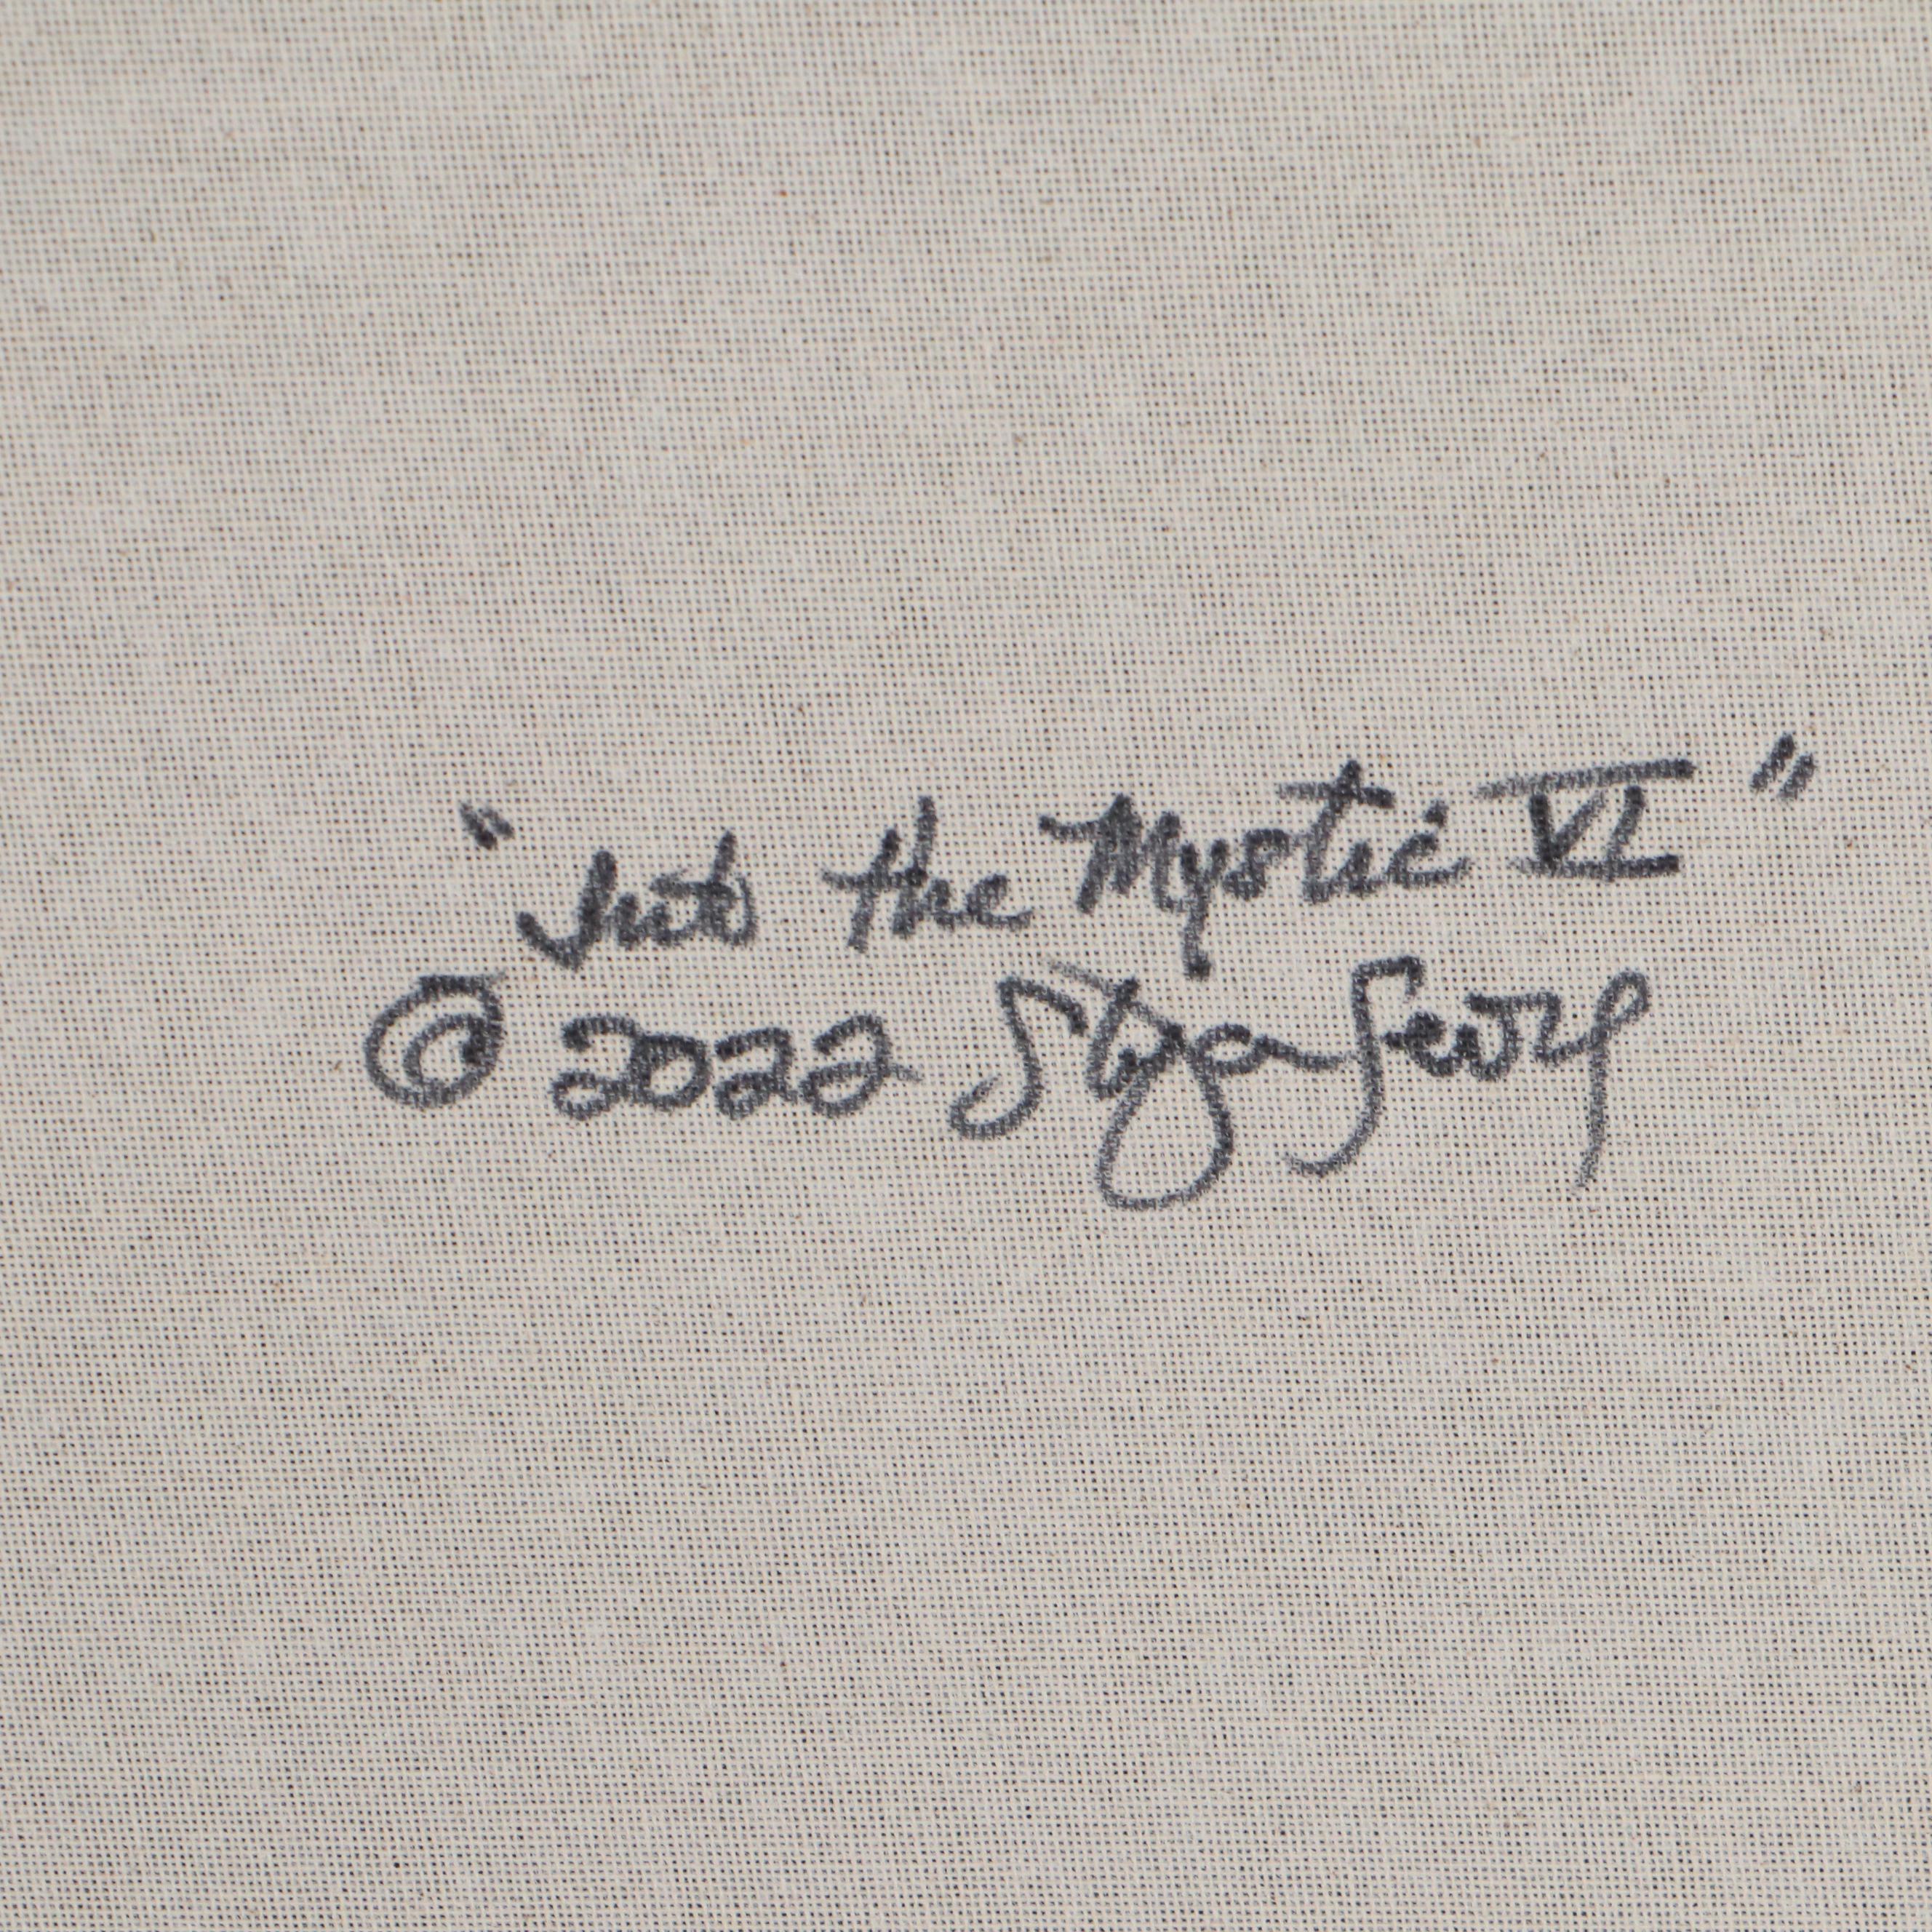 "Into the Mystic VI"
© 2022